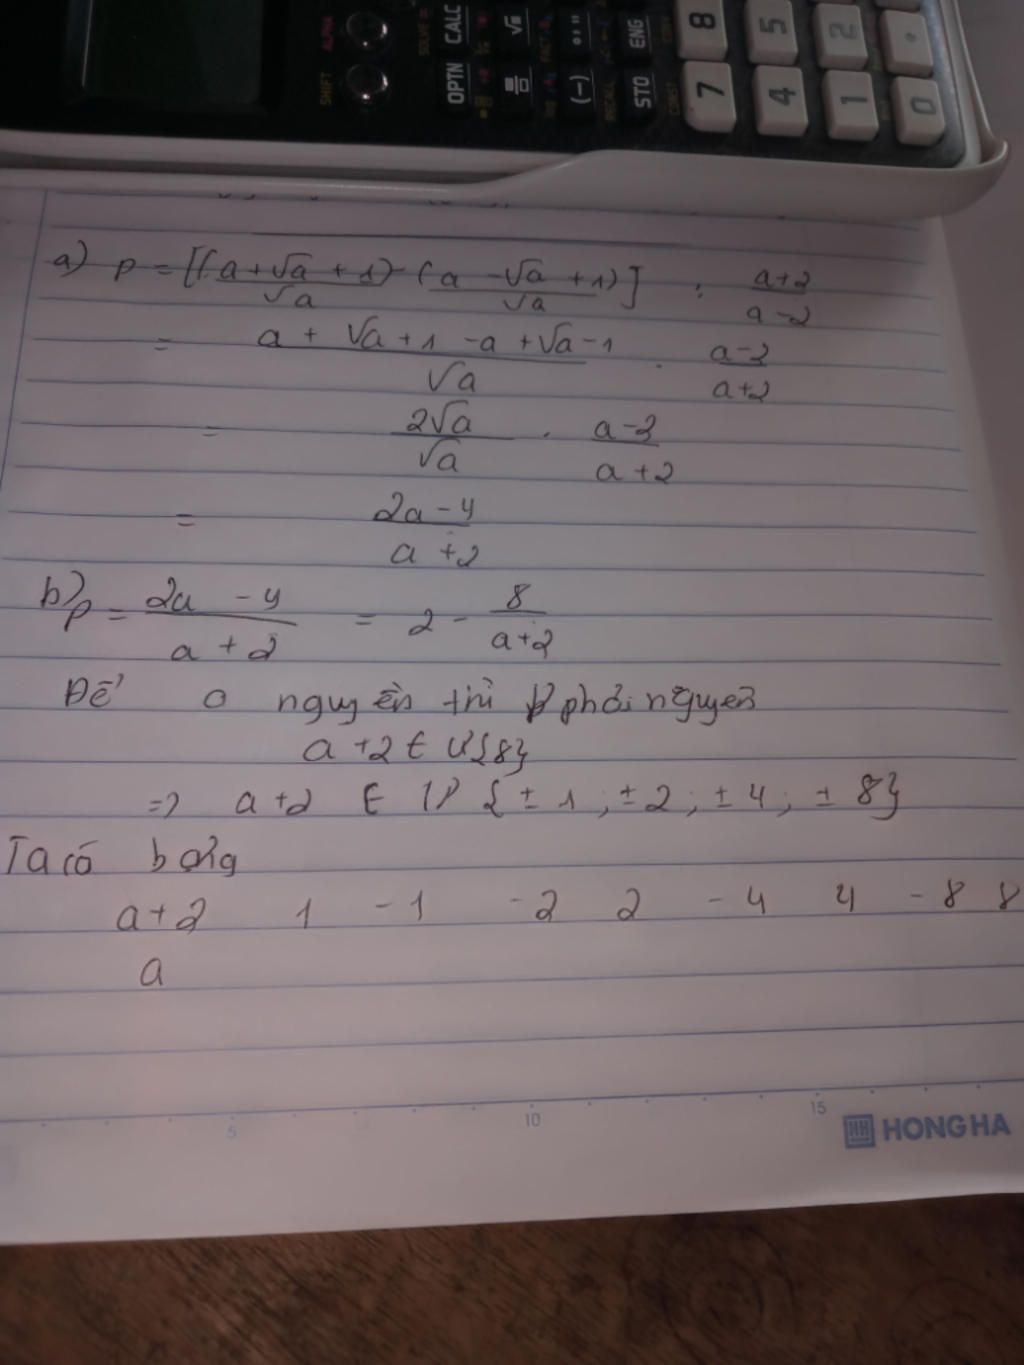 SHIFT ALPHA OPTN CALC (-) STO ENG 7 8 4 5 1 2 0
a) P = [(a+√a+1)/√a - (a-√a+1)/√a] : (a+2)/(a-2)
= (a + √a + 1 - a + √a - 1)/√a . (a-2)/(a+2)
= 2√a/√a . (a-2)/(a+2)
= (2a-4)/(a+2)
b) P = (2a-4)/(a+2) = 2 - 8/(a+2)
Để a nguyên thì P phải nguyen
a+2 ∈ Ư{8}
=> a+2 ∈ Ư {±1; ±2; ±4; ±8}
Ta có bảng
a+2 1 -1 -2 2 -4 4 -8 8
a
5 10 15
HH HONG HA